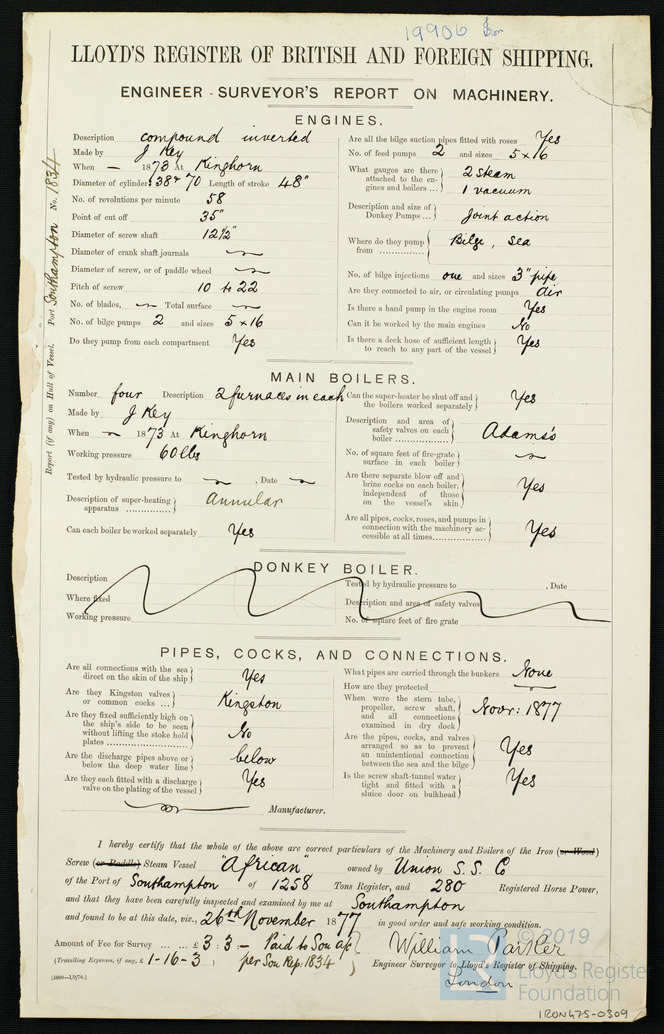 19906 Iron
LLOYD'S REGISTER OF BRITISH AND FOREIGN SHIPPING.
ENGINEER-SURVEYOR'S REPORT ON MACHINERY.
Report (if any) on Hull of Vessel. Port Southampton No. 1834
ENGINES.
Description compound inverted
Made by J Key
When — 1873 At Kinghorn
Diameter of cylinders 38 & 70 Length of stroke 48"
No. of revolutions per minute 58
Point of cut off 35"
Diameter of screw shaft 12½"
Diameter of crank shaft journals
Diameter of screw, or of paddle wheel
Pitch of screw 10 to 22
No. of blades, Total surface
No. of bilge pumps 2 and sizes 5 x 16
Do they pump from each compartment Yes
Are all the bilge suction pipes fitted with roses Yes
No. of feed pumps 2 and sizes 5 x 16
What gauges are there
attached to the en-
gines and boilers ... 2 steam
1 vacuum
Description and size of
Donkey Pumps ... Joint action
Where do they pump
from .................. Bilge, sea
No. of bilge injections one and sizes 3" pipe
Are they connected to air, or circulating pumps air
Is there a hand pump in the engine room Yes
Can it be worked by the main engines No
Is there a deck hose of sufficient length
to reach to any part of the vessel Yes
MAIN BOILERS.
Number four Description 2 furnaces in each
Made by J Key
When 1873 At Kinghorn
Working pressure 60 lbs
Tested by hydraulic pressure to , Date
Description of super-heating
apparatus .............. Annular
Can each boiler be worked separately Yes
Can the super-heater be shut off and
the boilers worked separately Yes
Description and area of
safety valves on each
boiler ................ Adams's
No. of square feet of fire-grate
surface in each boiler
Are there separate blow off and
brine cocks on each boiler,
independent of those
on the vessel's skin Yes
Are all pipes, cocks, roses, and pumps in
connection with the machinery ac-
cessible at all times........... Yes
DONKEY BOILER.
Description
Where fixed
Working pressure
Tested by hydraulic pressure to , Date
Description and area of safety valves
No. of square feet of fire grate
PIPES, COCKS, AND CONNECTIONS.
Are all connections with the sea
direct on the skin of the ship Yes
Are they Kingston valves
or common cocks ... Kingston
Are they fixed sufficiently high on
the ship's side to be seen
without lifting the stoke hold
plates ........................ No
Are the discharge pipes above or
below the deep water line below
Are they each fitted with a discharge
valve on the plating of the vessel Yes
What pipes are carried through the bunkers None
How are they protected
When were the stern tube,
propeller, screw shaft,
and all connections
examined in dry dock Novr: 1877
Are the pipes, cocks, and valves
arranged so as to prevent
an unintentional connection
between the sea and the bilge Yes
Is the screw shaft-tunnel water
tight and fitted with a
sluice door on bulkhead Yes
Manufacturer.
I hereby certify that the whole of the above are correct particulars of the Machinery and Boilers of the Iron (or Wood)
Screw (or Paddle) Steam Vessel "African" owned by Union S. S. Co
of the Port of Southampton of 1258 Tons Register, and 280 Registered Horse Power,
and that they have been carefully inspected and examined by me at Southampton
and found to be at this date, viz., 26th November 1877 in good order and safe working condition.
Amount of Fee for Survey ... ... £ 3 : 3 : — Paid to Sou
(Travelling Expenses, if any, £ 1-16-3 ) per Sou Rep: 1834
William Parker
Engineer Surveyor to Lloyd's Register of Shipping.
London
© 2019
LR
Lloyd's Register
Foundation
IRON475-0309